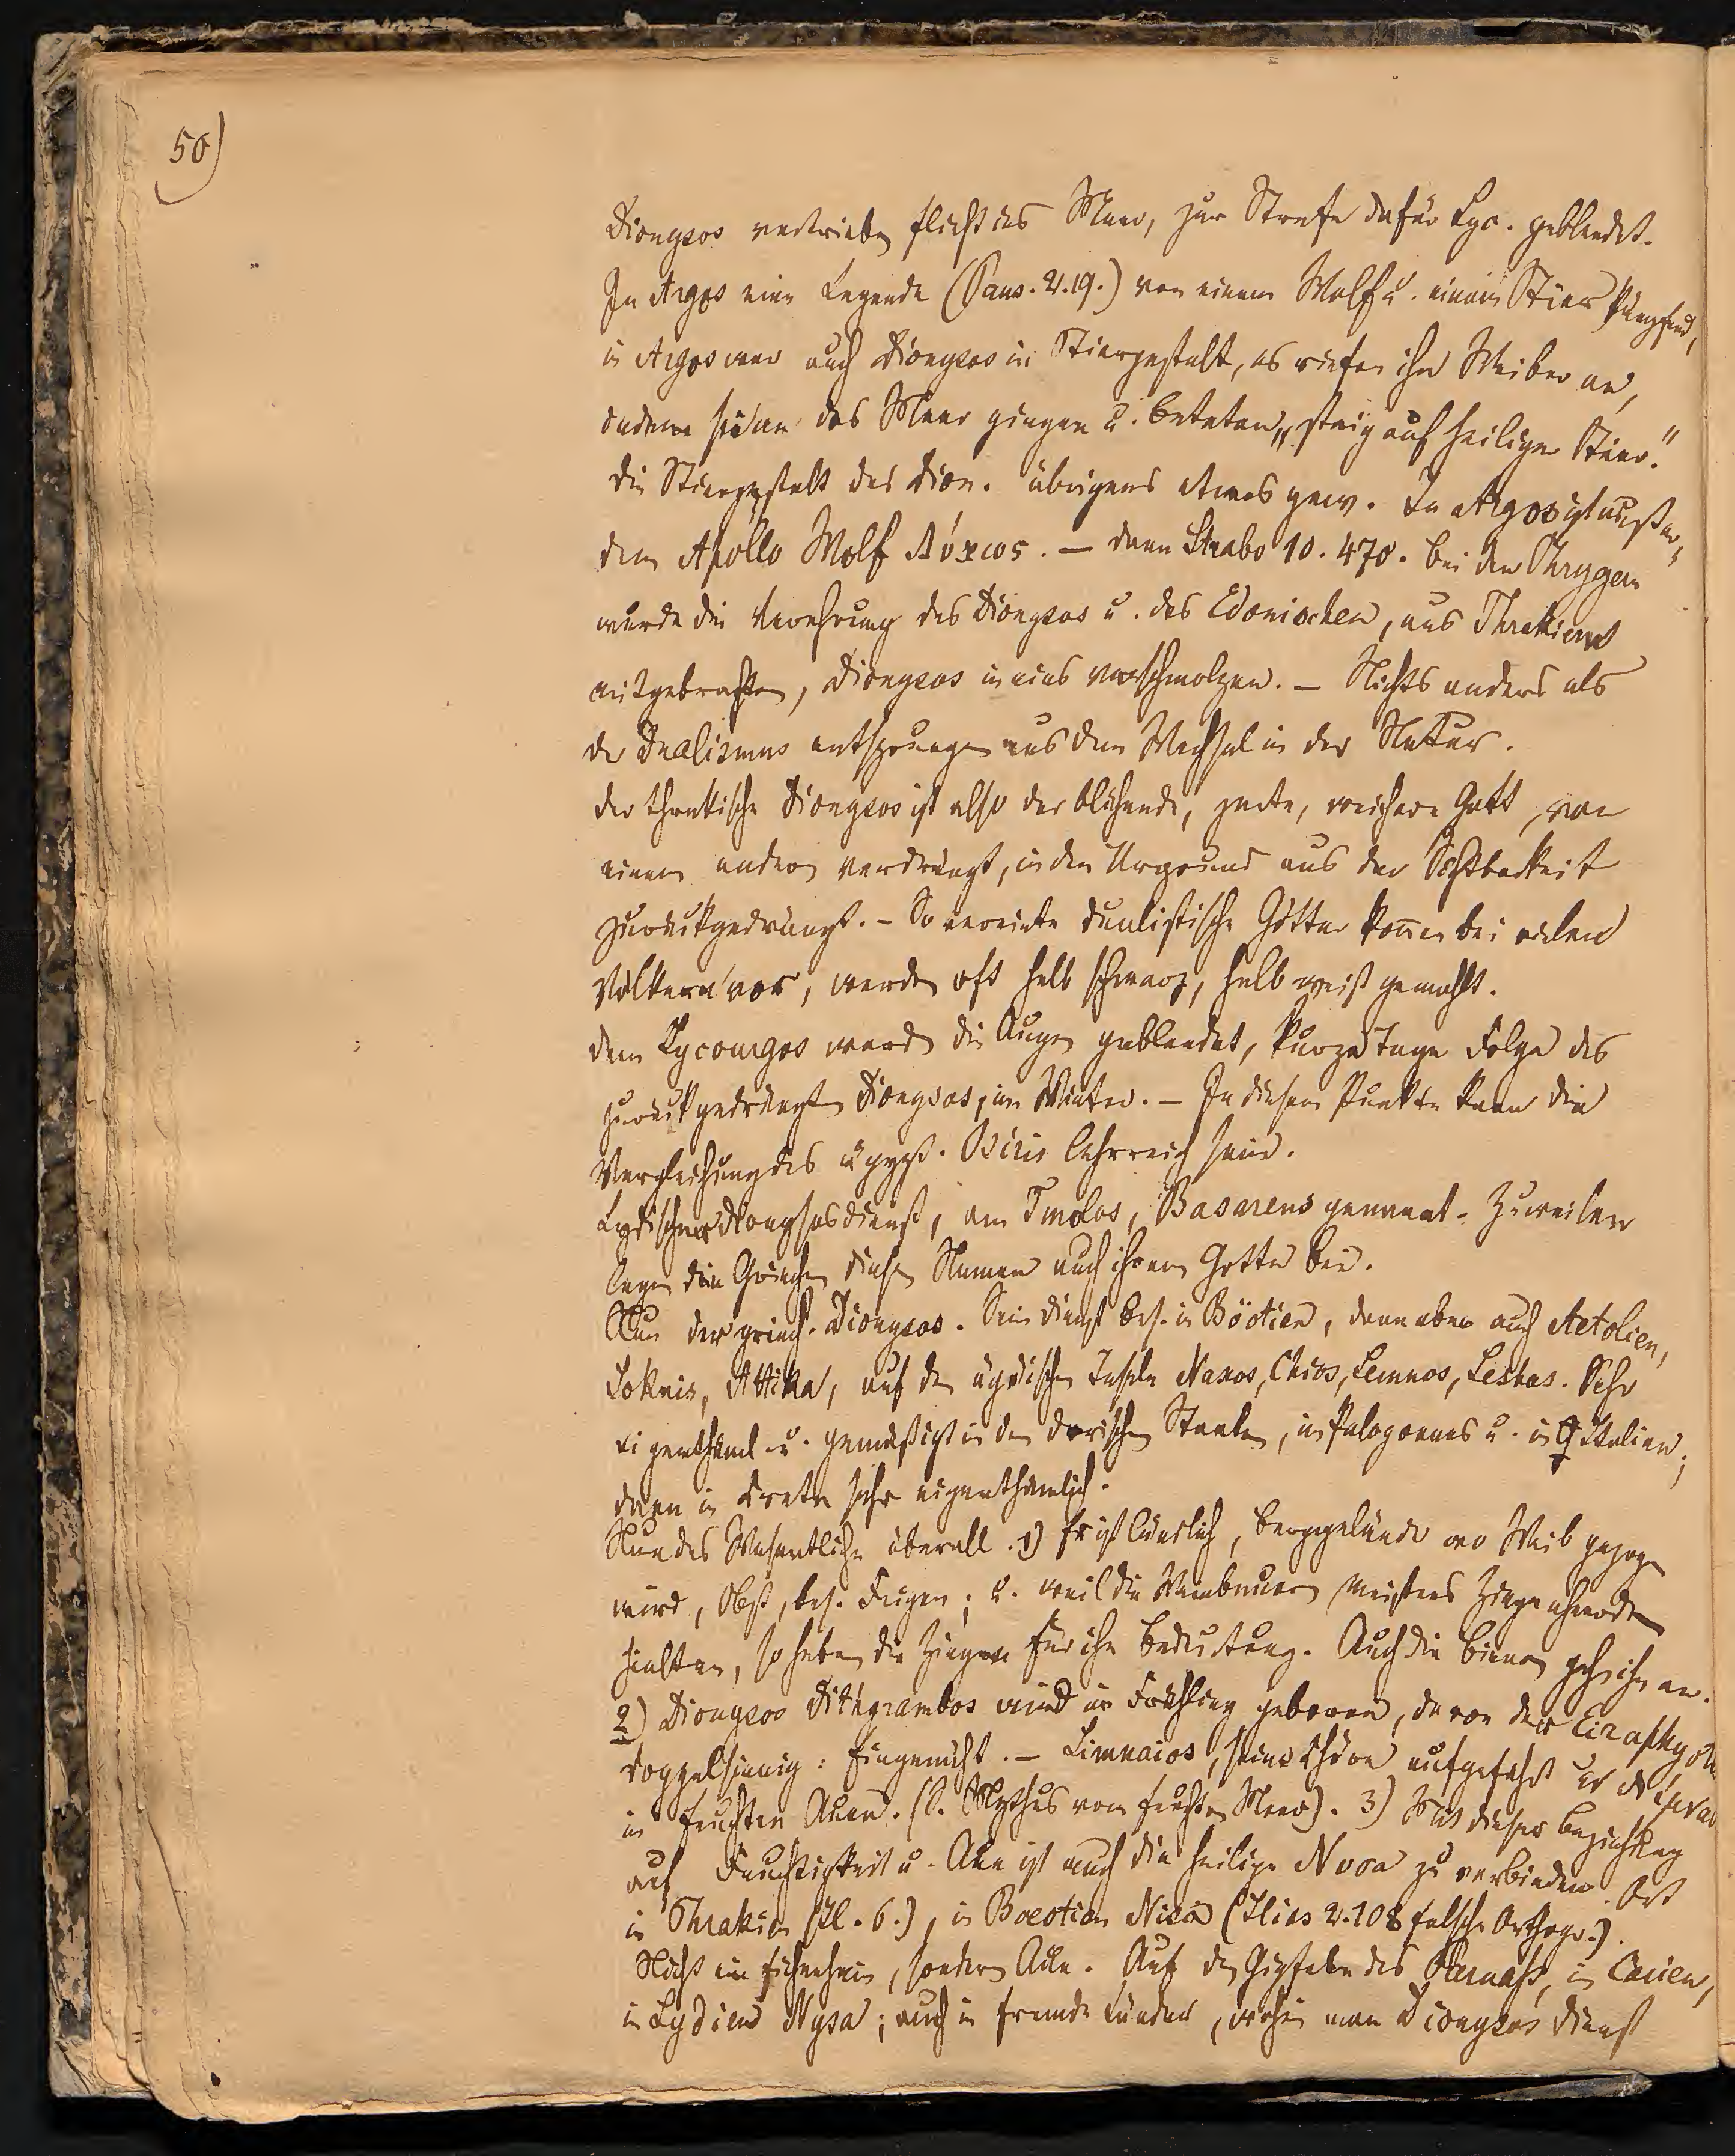 50)
Dionysos vertrieben flieht ins Meer, zur Strafe dafür Lyc. geblendet.
In Argos eine Legende (Paus. 2.19.) von einem Wolf u. einem Stier kämpfend,
in Argos war auch Dionysos in Stiergestalt, es riefen ihn Weiber an,
indem sie an das Meer gingen u. beteten „steig auf heiliger Stier."
Die Stiergestalt des Dion. übrigens etwas gew. In Argos ist
dem Apollo Wolf Λύκιος. — dann Strabo 10. 470. bei den Phrygern
wurde die Verehrung des Dionysos u. des Edonischen, aus Thrakien
mitgebrachten, Dionysos in eins verschmolzen. — Nichts anders als
der Dualismus entsprungen aus dem Wechsel in der Natur.
der thrakische Dionysos ist also der blühende, zarte, weichere Gott, von
einem andern verdrängt, in den Urgrund aus der Sichtbarkeit
zurückgedrängt. — So vereinte dualistische Götter kom̄en bei vielen
Völkern vor, werden oft halb schwarz, halb weiß gemahlt.
dem Lycourgos werden die Augen geblendet, kurze Tage Folge des
zurückgedrängten Dionysos, im Winter. — In diesem Punkte kann die
Vergleichung des ägypt. Osiris lehrreich sein.
Lydischer Dionysosdienst, am Tmolos, Basareus genannt. Zuweilen
legen die Griechen diesen Namen auch ihrem Gotte bei.
Nun der griech. Dionysos. Sein Dienst bes. in Böotien, dann aber auch Aetolien,
Lokris, Attika, auf den ägäischen Inseln Naxos, Chios, Lemnos, Lesbos. Sehr
eigenthüml. u. gemäßigt in den dorischen Staaten, im Peloponnes u. in Italien;
dann in Creta sehr eigenthümlich.
Nun das Wesentliche überall. 1) Er ist ländlich, Berggelände wo Wein gezogen
wird, Obst, bes. Feigen; u. weil die Weinbauer meistens Ziegenheerden
hielten, so haben die Ziegen für ihn Bedeutung. Auch die Bienen gehn ihn an.
2) Dionysos Dithyrambos wird im Frühling geboren, davon der Eiraphyotes
doppelsinnig: Eingenäht. — Limnaios, seine Chöre aufgeführt
in feuchten Auen. (S. Mythus vom feuchten Meer). 3) Mit dieser Beziehung
auf Feuchtigkeit u. Aue ist auch die heilige Nysa zu verbinden. Ort
in Thrakien (Il. 6.), in Boeotien Nisa (Ilias 2.108 falsche Orthogr.).
Nicht ein, sondern Aue. Auf den Gipfeln des Parnass, in Carien,
in Lydien Nysa; auch in fremde Länder, wohin man Dionysos Dienst